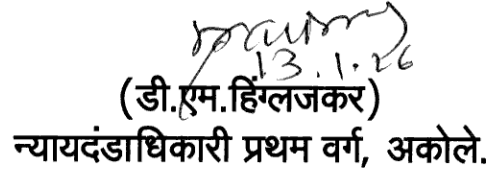 13.1.26
(डी.एम.हिंग्लजकर)
न्यायदंडाधिकारी प्रथम वर्ग, अकोले.